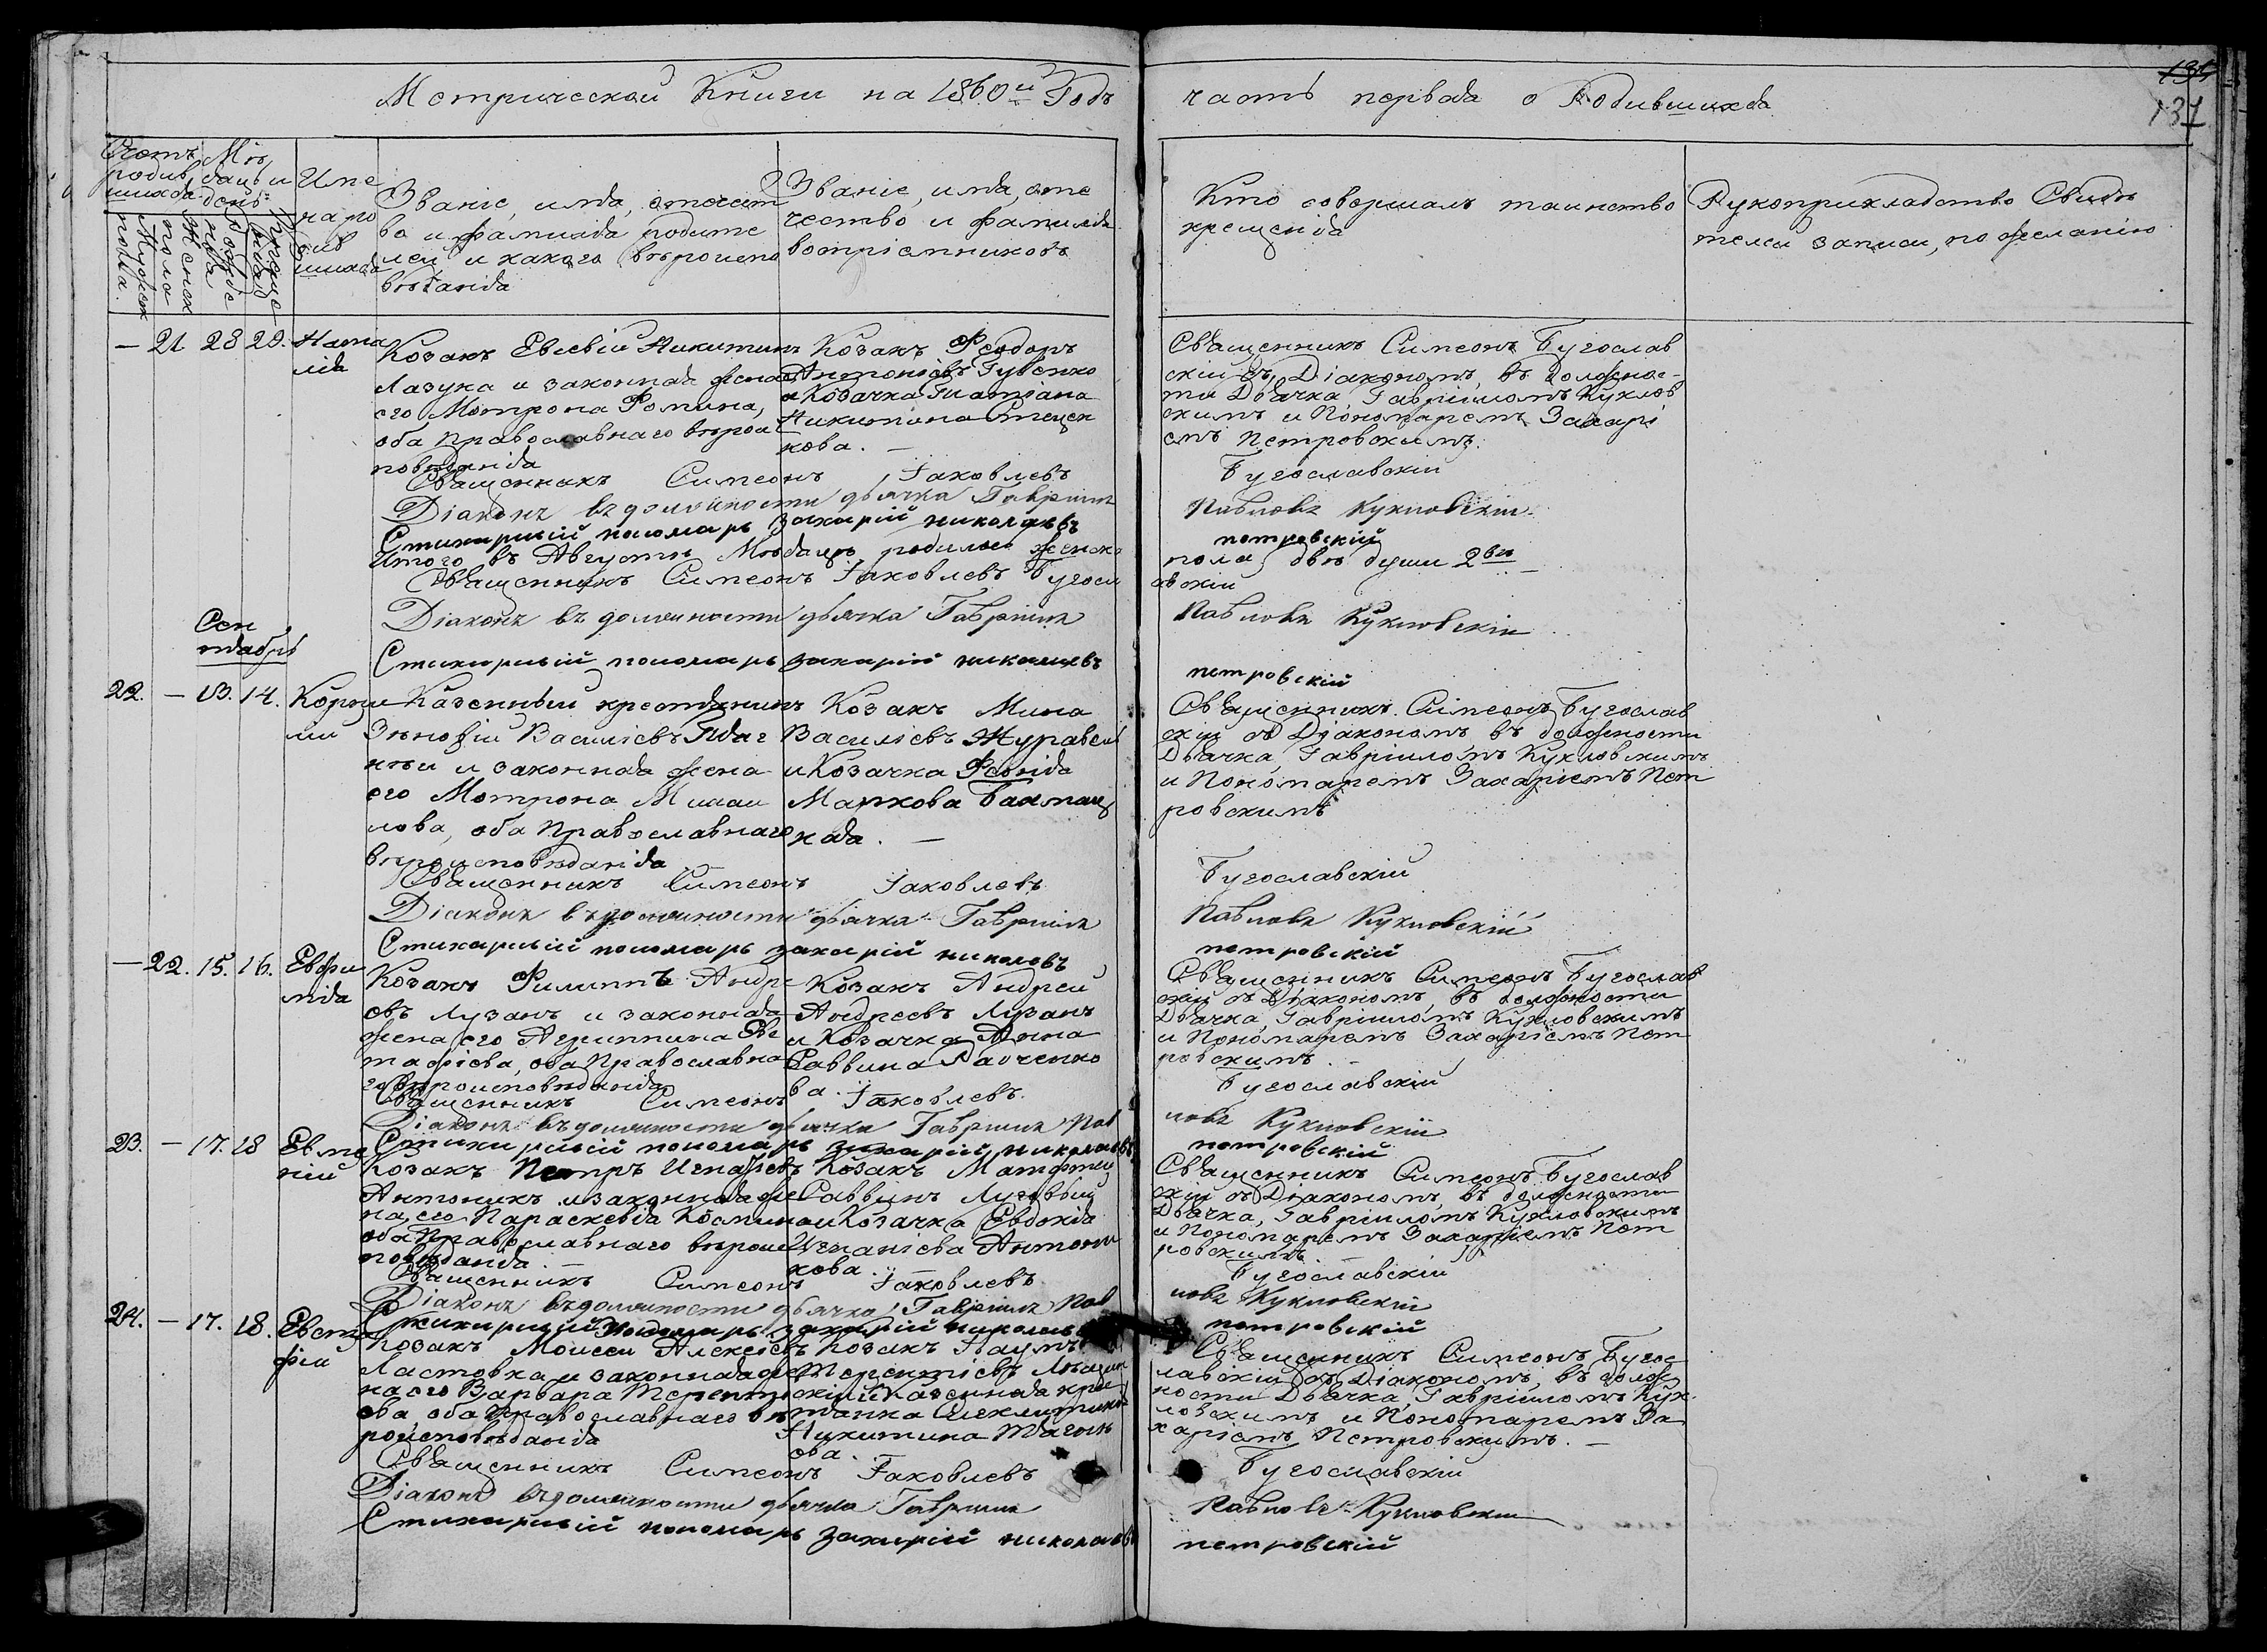 Метрической Книги на 1860й Годъ
часть первая о Родившихся
131
Счетъ родив шихся
Мѣ сяцъ и день
Име на ро див шихся
Званіе, имя, отечест
во и фамилія родите
лей и какого вѣроиспо
вѣданія
Званіе, имя, оте
чество и фамилія
воспріемниковъ
Кто совершалъ таинство
крещенія
Рукоприкладство Свидѣ
телей записи, по желанію
Мужеск пола.
Женск пола
Рожде нія
Креще нія
— 21. 28 29. Ната
лія
Козакъ Евсевій Никитинъ
Лазука и законная жена
его Матрона Фомина,
оба Православнаго вѣрои
повѣданія
Козакъ Феодоръ
Антоніевъ Гуленко
и Козачка Татіана
Никитина Стецен
кова. —
Священникъ Симеонъ Бугослав
скій съ Діакономъ, въ должнос-
ти Дьячка, Гавріиломъ Кукловъ
скимъ и Пономаремъ Захарі
емъ Петровскимъ.
Священникъ Симеонъ Іаковлевъ
Бугославскій
Діаконъ въ должности дьячка Гавріилъ
Павловъ Кукловскій
Стихарный пономарь Захарій николаевъ
петровскій
Итого въ Августѣ Мѣсяцѣ родилось женска
пола двѣ души 2вѣ
Священникъ Симеонъ Іаковлевъ Бугосл
авскій
Діаконъ въ должности дьячка Гавріилъ
Павловъ Кукловскій
Сен
тябрь
Стихарный пономарь захарій николаевъ
петровскій
22. — 13. 14. Корни
лій
Казенный крестянинъ
Зѣновій Василіевъ
и законная жена
его Матрона Михаи
лова, оба Православнаго
вѣроисповѣданія
Козакъ Мина
Василіевъ Журавель
и Козачка Феонія
Маркова Бахмац
кая. —
Священникъ Симеонъ Бугослав
скій съ Діакономъ въ должности
Дьячка, Гавріиломъ Кукловскимъ
и Пономаремъ Захаріемъ Пет
ровскимъ
Священникъ Симеонъ Іаковлевъ
Бугославскій
Діаконъ въ должности дьячка Гавріилъ
Павловъ Кукловскій
Стихарный пономарь захарій николаевъ
петровскій
— 22. 15. 16. Евфи
мія
Козакъ Филиппъ Андре
евъ Лузанъ и законная
жена его Агриппина Евс
тафіева, оба Православна
го вѣроисповѣданія
Козакъ Андрей
Андреевъ Лузанъ
и Козачка Анна
Саввина Радченко
ва.
Священникъ Симеонъ Бугослав
скій съ Діакономъ, въ должности
Дьячка, Гавріиломъ Кукловскимъ
и Пономаремъ Захаріемъ Пет
ровскимъ.
Священникъ Симеонъ Іаковлевъ
Бугославскій
Діаконъ въ должности дьячка Гавріилъ Пав
ловъ Кукловскій
Стихарный пономарь захарій николаевъ
петровскій
23. — 17. 18 Евме
ній
Козакъ Петръ Игнатіевъ
Антоникъ и законная же
на его Параскевія Космина
оба Православнаго вѣроис
повѣданія
Козакъ Матфей
Саввинъ Луговый
и Козачка Евдокія
Игнатіева Антони
кова
Священникъ Симеонъ Бугослав
скій съ Діакономъ, въ должности
Дьячка, Гавріиломъ Кукловскимъ
и Пономаремъ Захаріемъ Пет
ровскимъ
Священникъ Симеонъ Іаковлевъ
Бугославскій
Діаконъ въ должности дьячка Гавріилъ Пав
ловъ Кукловскій
Стихарный пономарь захарій николаевъ
петровскій
24. — 17. 18. Евста
фій
Козакъ Моисей Алексіевъ
Ластовка и законная же
на его Варвара Теренті
ева, оба Православнаго вѣ
роисповѣданія
Козакъ Наумъ
Терентіевъ
скій и Казенная крес
тянка
Никитина Тягни
ева
Священникъ Симеонъ Бугос
лавскій съ Діакономъ, въ долж
ности Дьячка, Гавріиломъ Кук
ловскимъ и Пономаремъ За
харіемъ Петровскимъ. —
Священникъ Симеонъ Іаковлевъ
Бугославскій
Діаконъ въ должности дьячка Гавріилъ
Павловъ Кукловскій
Стихарный пономарь захарій николаевъ
петровскій